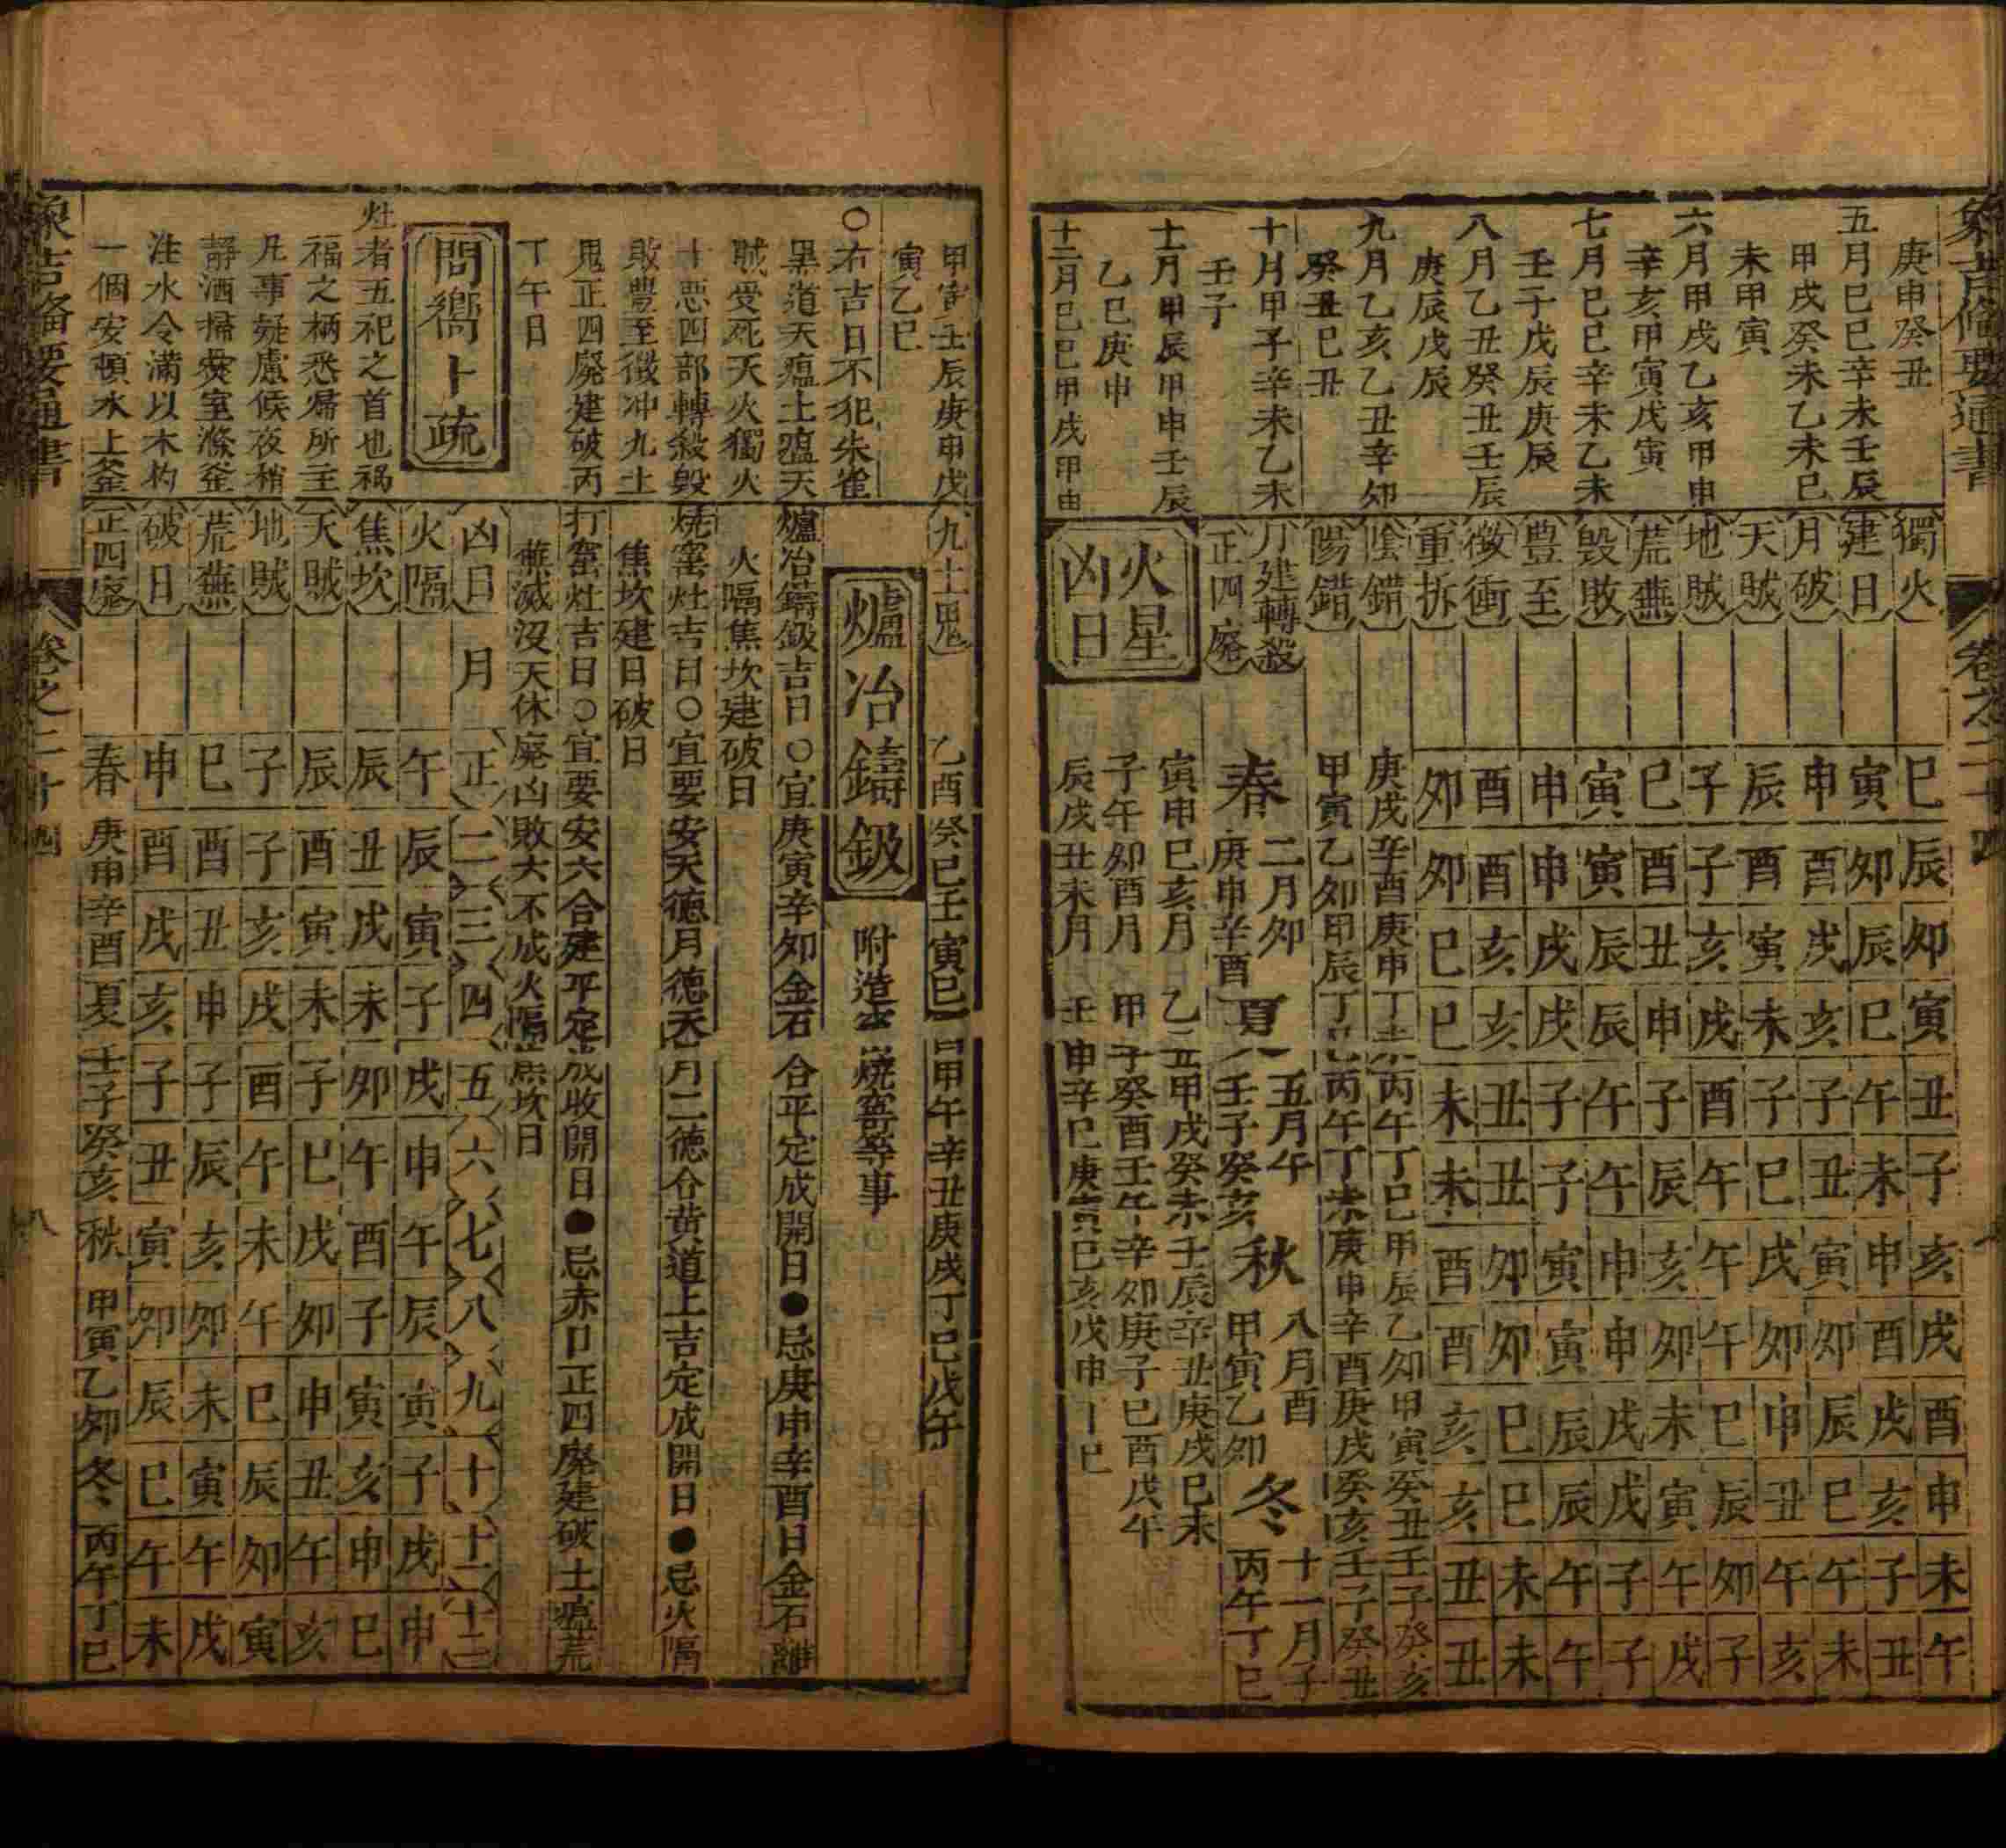 象吉備要通書
卷之二十四
庚申癸丑
五月巳巳辛未壬辰
甲戌癸未乙未巳
未甲寅
六月甲戌乙亥甲申
辛亥甲寅戊寅
七月巳巳辛未乙未
壬子戊辰庚辰
八月乙丑癸丑壬辰
庚辰戊辰
九月乙亥乙丑辛卯
癸丑巳丑
十月甲子辛未乙未
壬子
十一月甲辰甲申壬辰
乙巳庚申
十二月巳巳甲戌甲申
獨火 巳 辰 卯 寅 丑 子 亥 戌 酉 申 未 午
建日 寅 卯 辰 巳 午 未 申 酉 戌 亥 子 丑
月破 申 酉 戌 亥 子 丑 寅 卯 辰 巳 午 未
天賊 辰 酉 寅 未 子 巳 戌 卯 申 丑 午 亥
地賊 子 子 亥 戌 酉 午 午 午 巳 辰 卯 子
荒蕪 巳 酉 丑 申 子 辰 亥 卯 未 寅 午 戌
毀敗 寅 寅 辰 辰 午 午 申 申 戌 戌 子 子
豊至 申 申 戌 戌 子 子 寅 寅 辰 辰 午 午
徵衝 酉 酉 亥 亥 丑 丑 卯 卯 巳 巳 未 未
重拆 卯 卯 巳 巳 未 未 酉 酉 亥 亥 丑 丑
陰錯 庚戌 辛酉 庚申 丁未 丙午 丁巳 甲辰 乙卯 甲寅 癸丑 壬子 癸亥
陽錯 甲寅 乙卯 甲辰 丁巳 丙午 丁未 庚申 辛酉 庚戌 癸亥 壬子 癸丑
月建轉殺 春 二月卯 夏 五月午 秋 八月酉 冬 十一月子
正四廢 庚申辛酉 壬子癸亥 甲寅乙卯 丙午丁巳
火星凶日
寅申巳亥月 乙丑甲戌癸未壬辰辛丑庚戌巳未
子午卯酉月 甲子癸酉壬午辛卯庚子巳酉戊午
辰戌丑未月 壬申辛巳庚寅巳亥戊申丁巳
甲寅壬辰庚申戊
寅乙巳
○右吉日不犯朱雀
黑道天瘟土瘟天
賊受死天火獨火
十悪四部轉殺毀
敗豊至徵冲九土
鬼正四廢建破丙
丁午日
問嚮卜疏
灶者五祀之首也禍
福之柄悉歸所主
凡事疑慮候夜稍
靜洒掃爨室滌釜
注水令滿以木杓
一個安頓水上釜
九土鬼 乙酉癸巳壬寅巳酉甲午辛丑庚戌丁巳戊午
爐冶鑄鈒 附造 燒窰等事
爐冶鑄鈒吉日○宜庚寅辛卯金石合平定成開日●忌庚申辛酉日金石離
火隔焦坎建破日
燒窰灶吉日○宜要安天德月德天月二德合黃道上吉定成開日●忌火隔
焦坎建日破日
打窰灶吉日○宜要安六合建平定成收開日●忌赤口正四廢建破土瘟荒
蕪滅沒天休廢凶敗六不成火隔焦坎日
凶日 月 正 二 三 四 五 六 七 八 九 十 十一 十二
火隔 午 辰 寅 子 戌 申 午 辰 寅 子 戌 申
焦坎 辰 丑 戌 未 卯 午 酉 子 寅 亥 申 巳
天賊 辰 酉 寅 未 子 巳 戌 卯 申 丑 午 亥
地賊 子 子 亥 戌 酉 午 未 午 巳 辰 卯 寅
荒蕪 巳 酉 丑 申 子 辰 亥 卯 未 寅 午 戌
破日 申 酉 戌 亥 子 丑 寅 卯 辰 巳 午 未
正四廢 春 庚申辛酉 夏 壬子癸亥 秋 甲寅乙卯 冬 丙午丁巳
象吉備要通書
卷之二十四
八